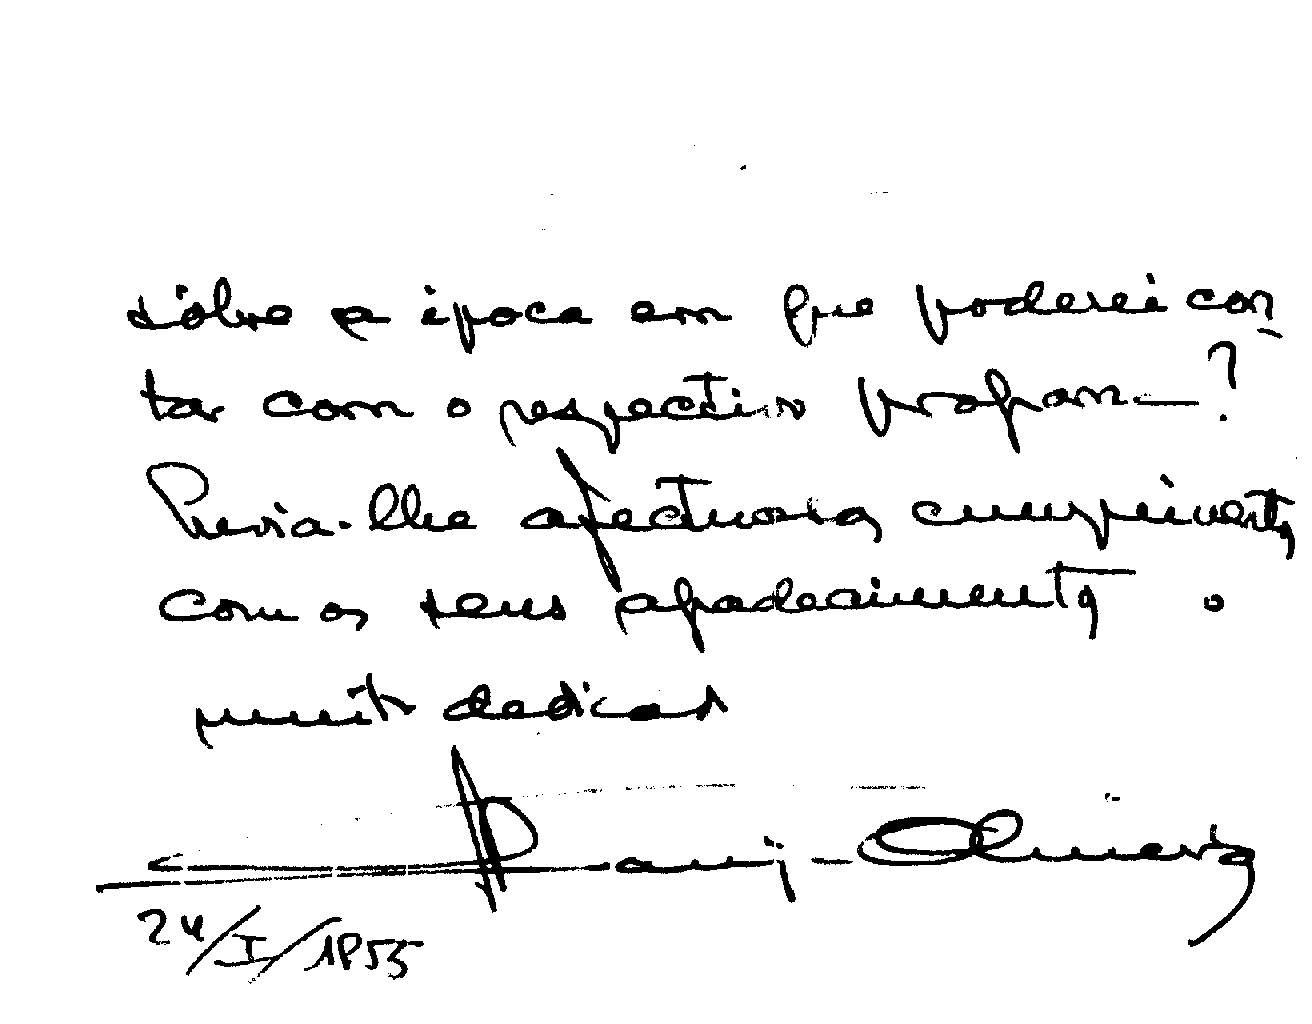 sôbre a época em que poderei con
tar com o respectivo program—?
Envia-lhe afectuosos cumprimentos
com os seus agradecimentos o
muito dedicado
24/I/1955